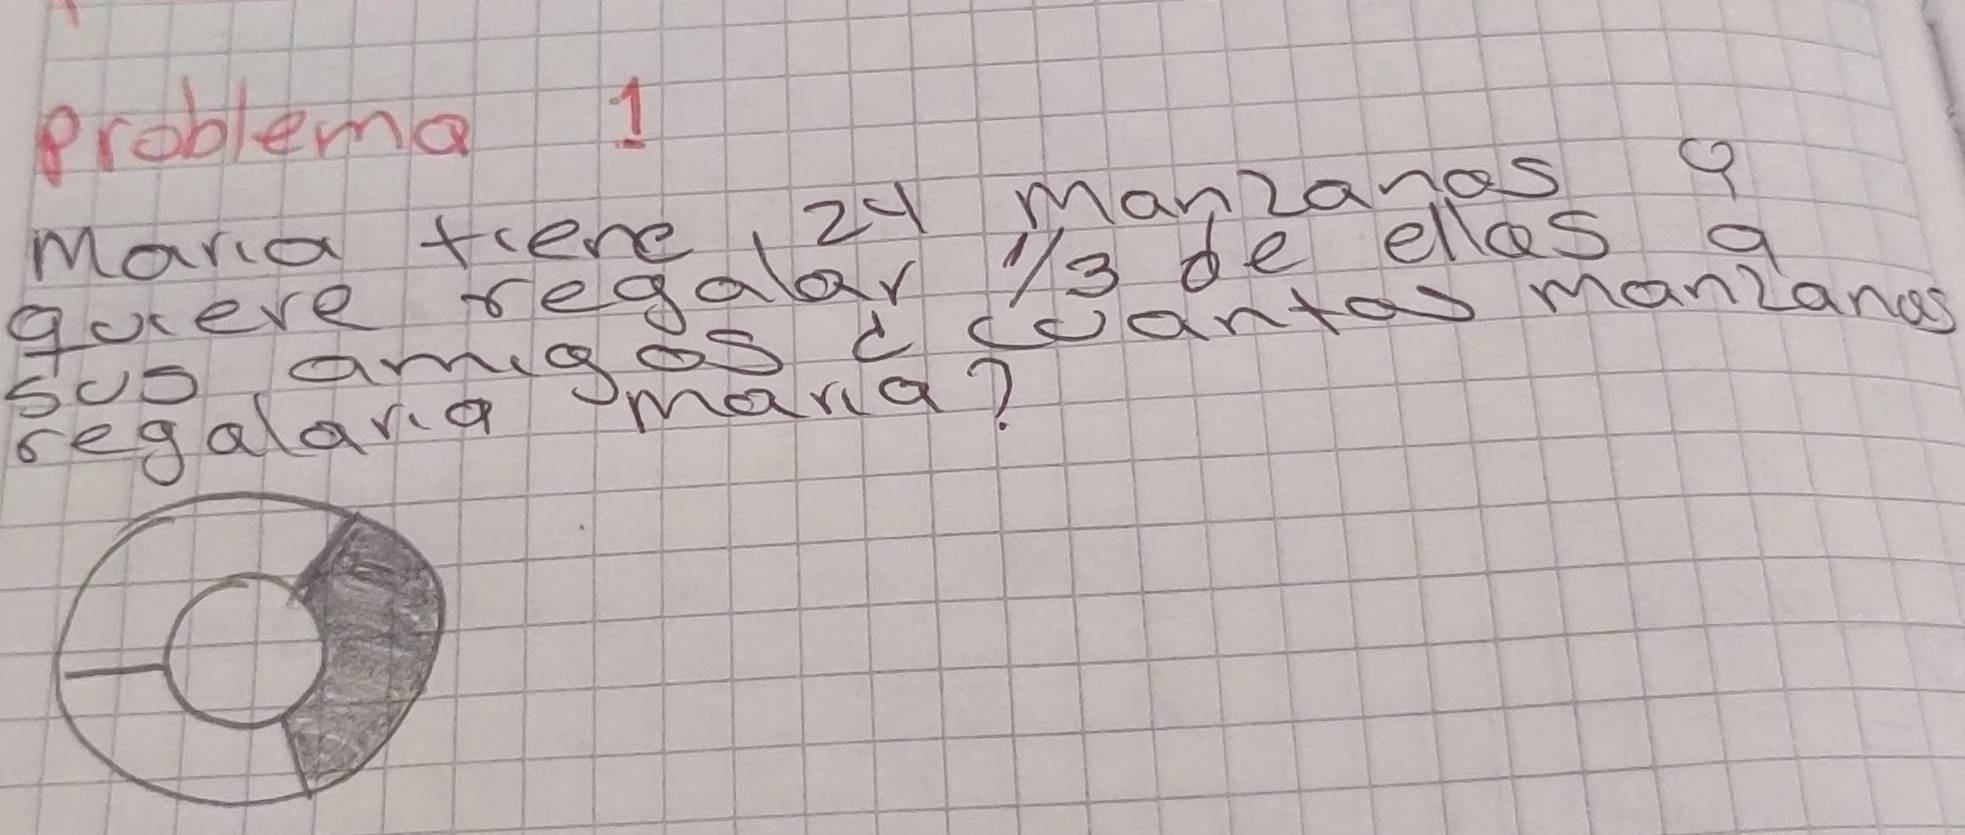 Problema 1
Maria tiene 24 manzanas q
quiere regalar 1/3 de ellas a
sus amigos ¿cuantas manzanas
regalaria maria?